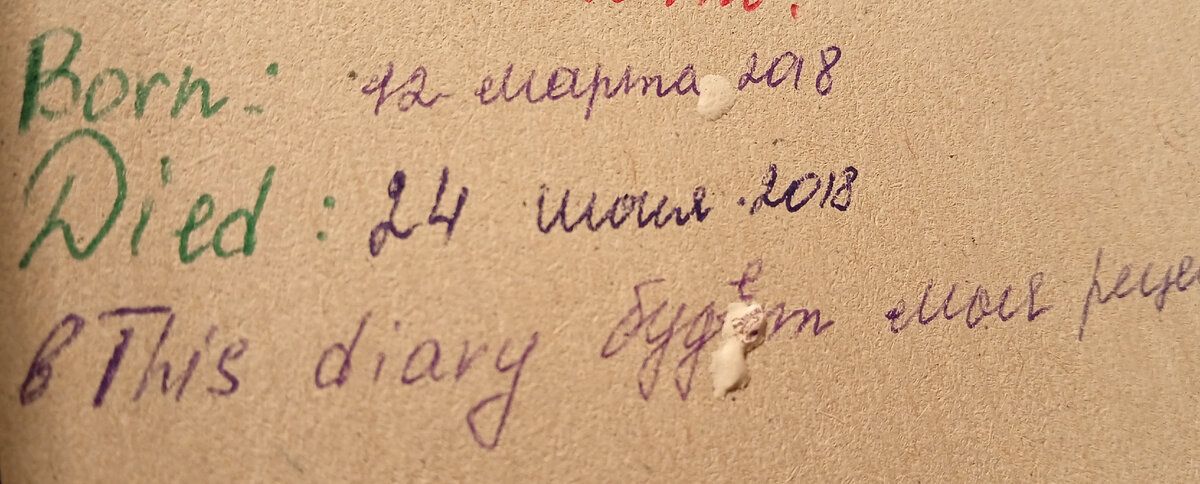 Born: 12 марта 2018
Died: 24 июня 2018
в This diary будет моя